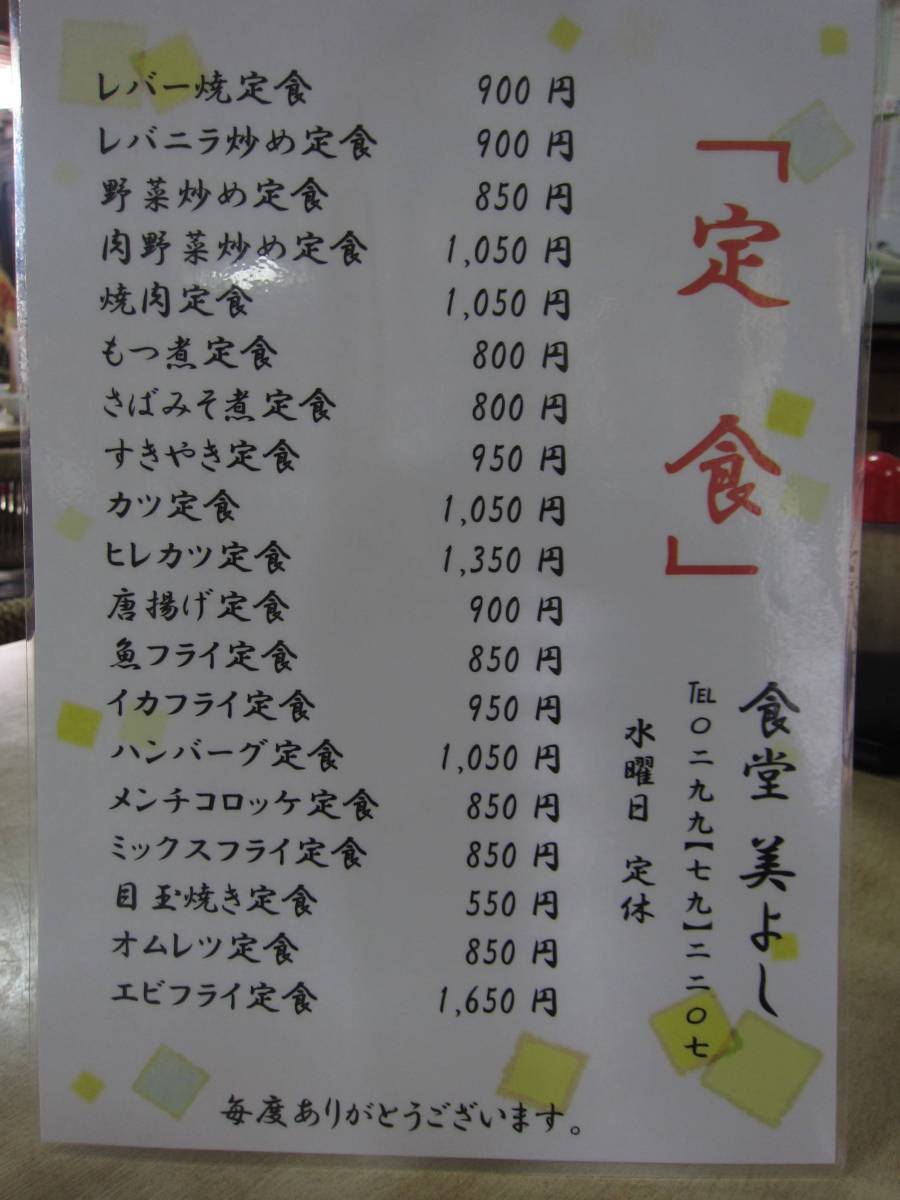 「定食」
食堂 美よし
TEL〇二九九【七九】二二〇七
水曜日 定休
レバー焼定食 900 円
レバニラ炒め定食 900 円
野菜炒め定食 850 円
肉野菜炒め定食 1,050 円
焼肉定食 1,050 円
もつ煮定食 800 円
さばみそ煮定食 800 円
すきやき定食 950 円
カツ定食 1,050 円
ヒレカツ定食 1,350 円
唐揚げ定食 900 円
魚フライ定食 850 円
イカフライ定食 950 円
ハンバーグ定食 1,050 円
メンチコロッケ定食 850 円
ミックスフライ定食 850 円
目玉焼き定食 550 円
オムレツ定食 850 円
エビフライ定食 1,650 円
毎度ありがとうございます。